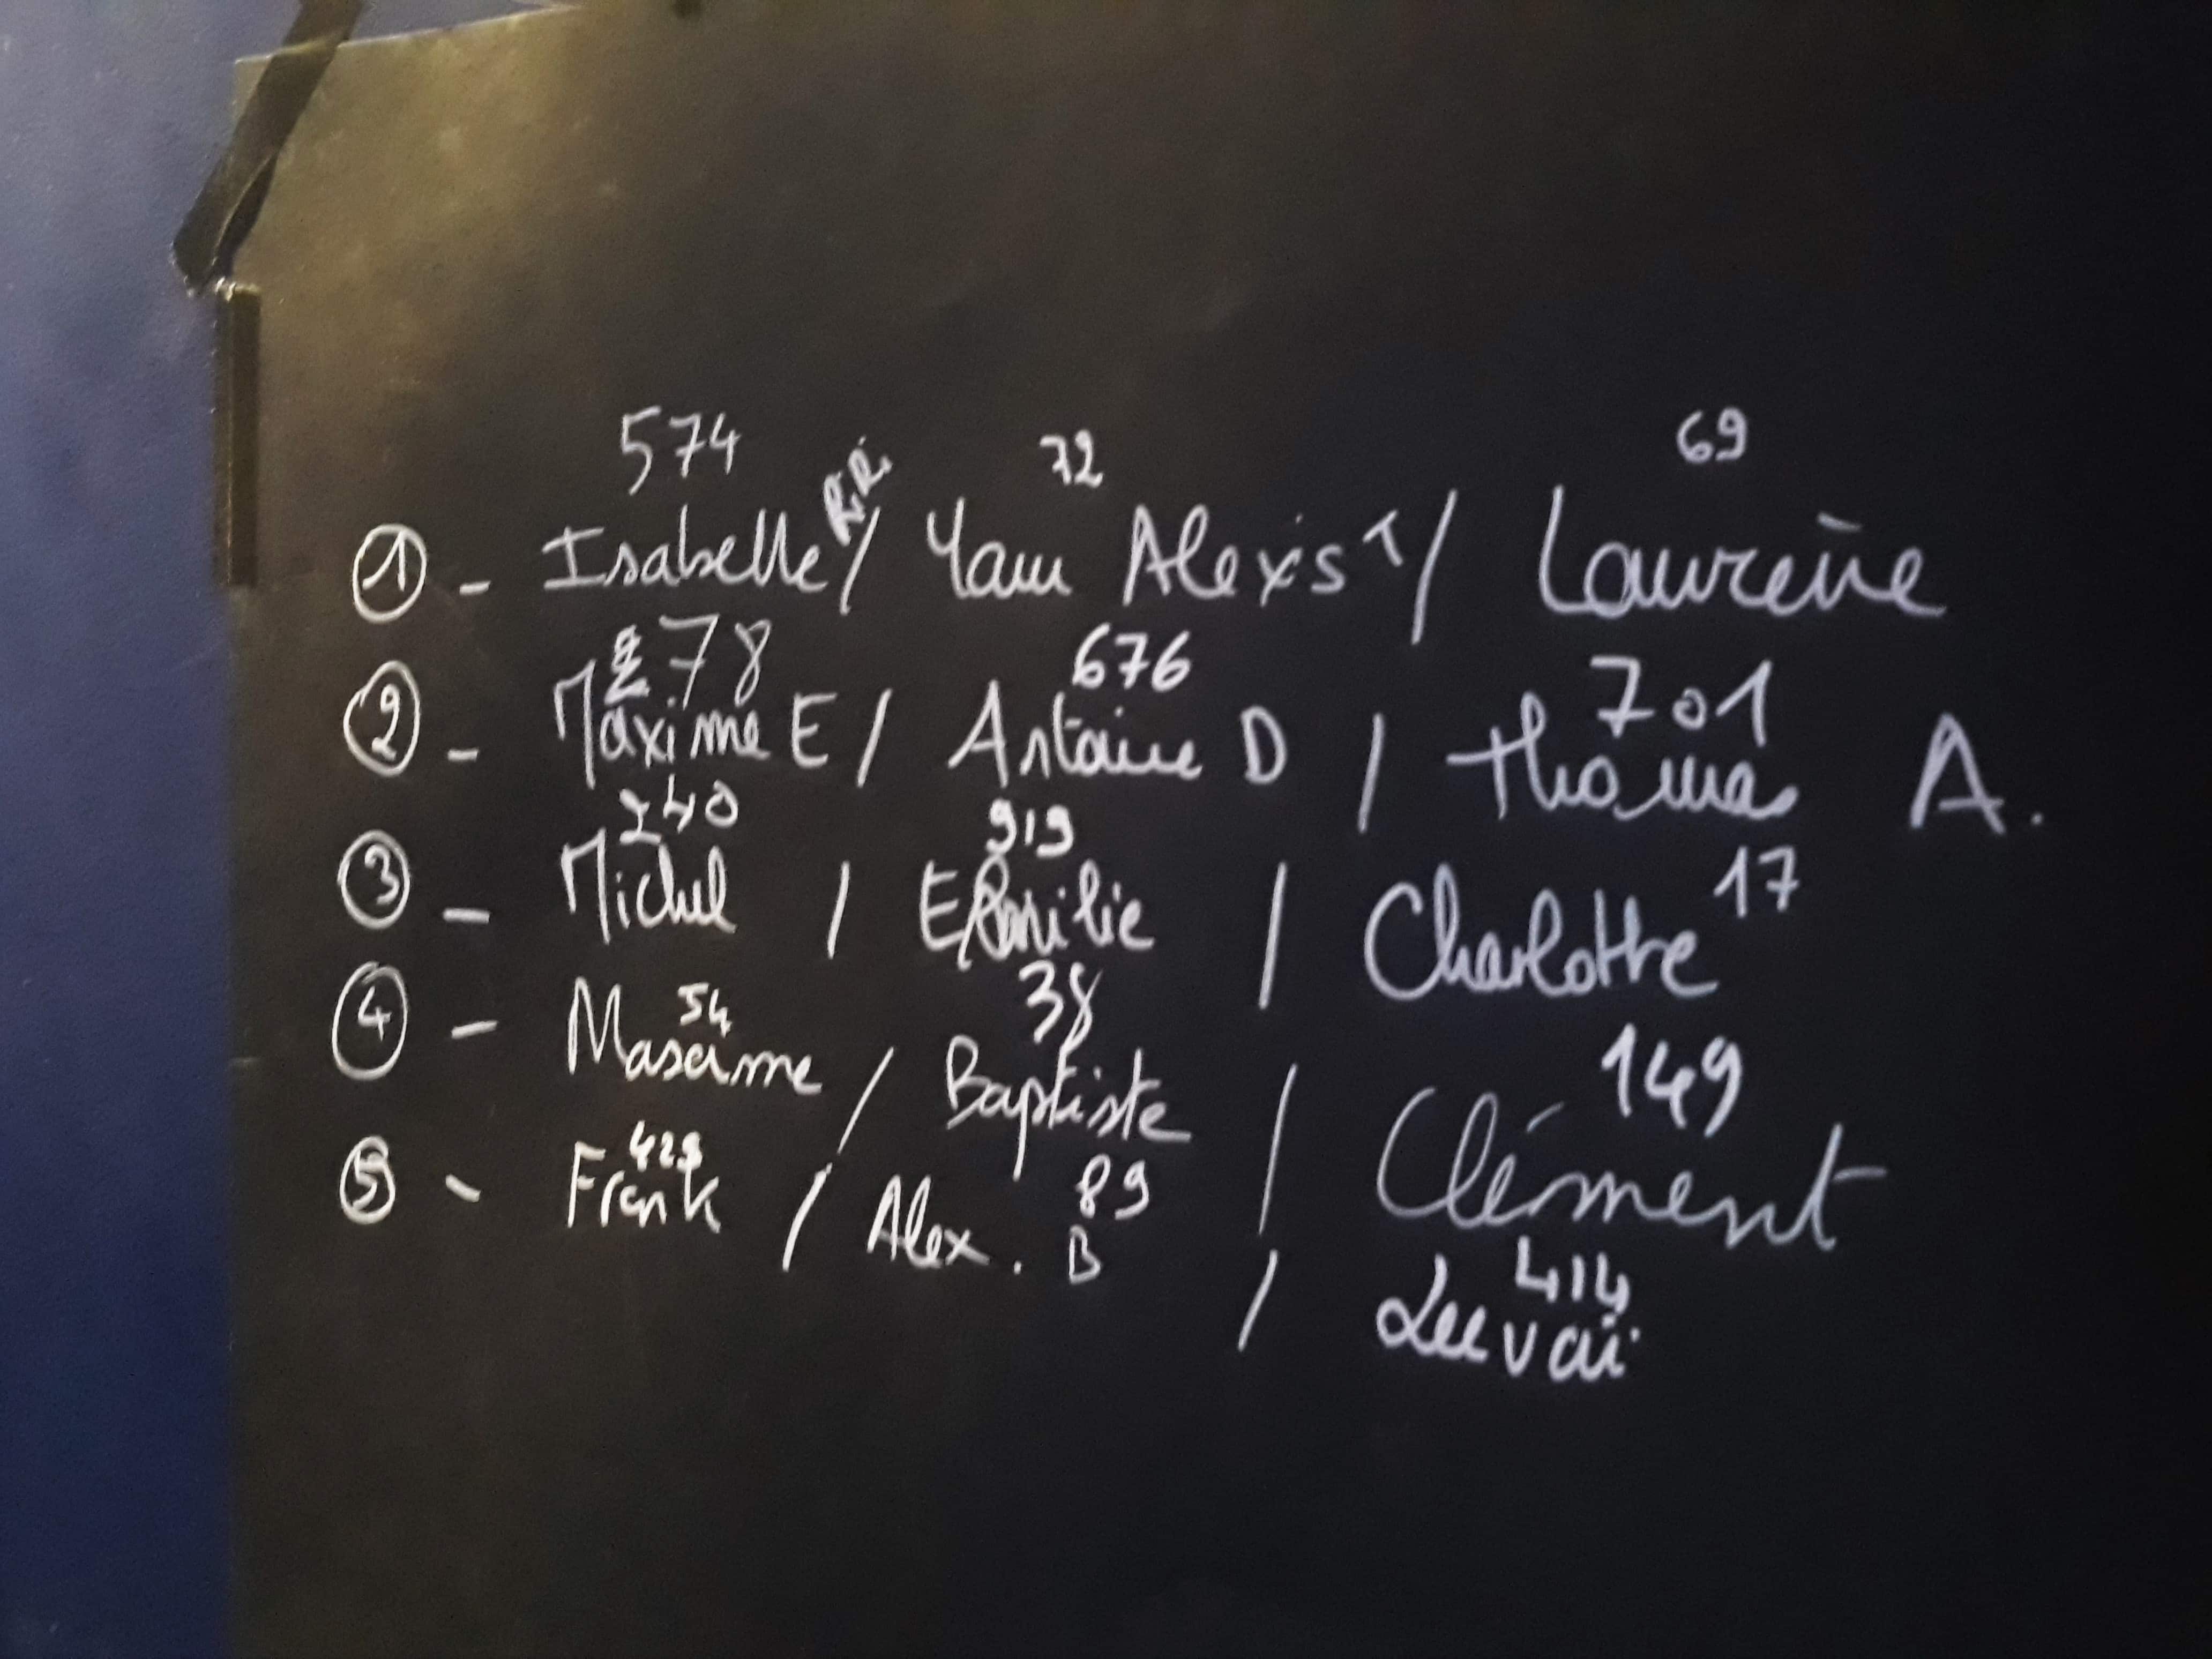 574 72 69
① - Isabelle R.R. / Yann Alexis T / Laurène
78 676 701
② - Maxime E / Antoine D / Thomas A.
240 919 17
③ - Michel / Emilie / Charlotte
54 38 149
④ - Maxime / Baptiste / Clément
429 89 414
⑤ - Frank / Alex. B /